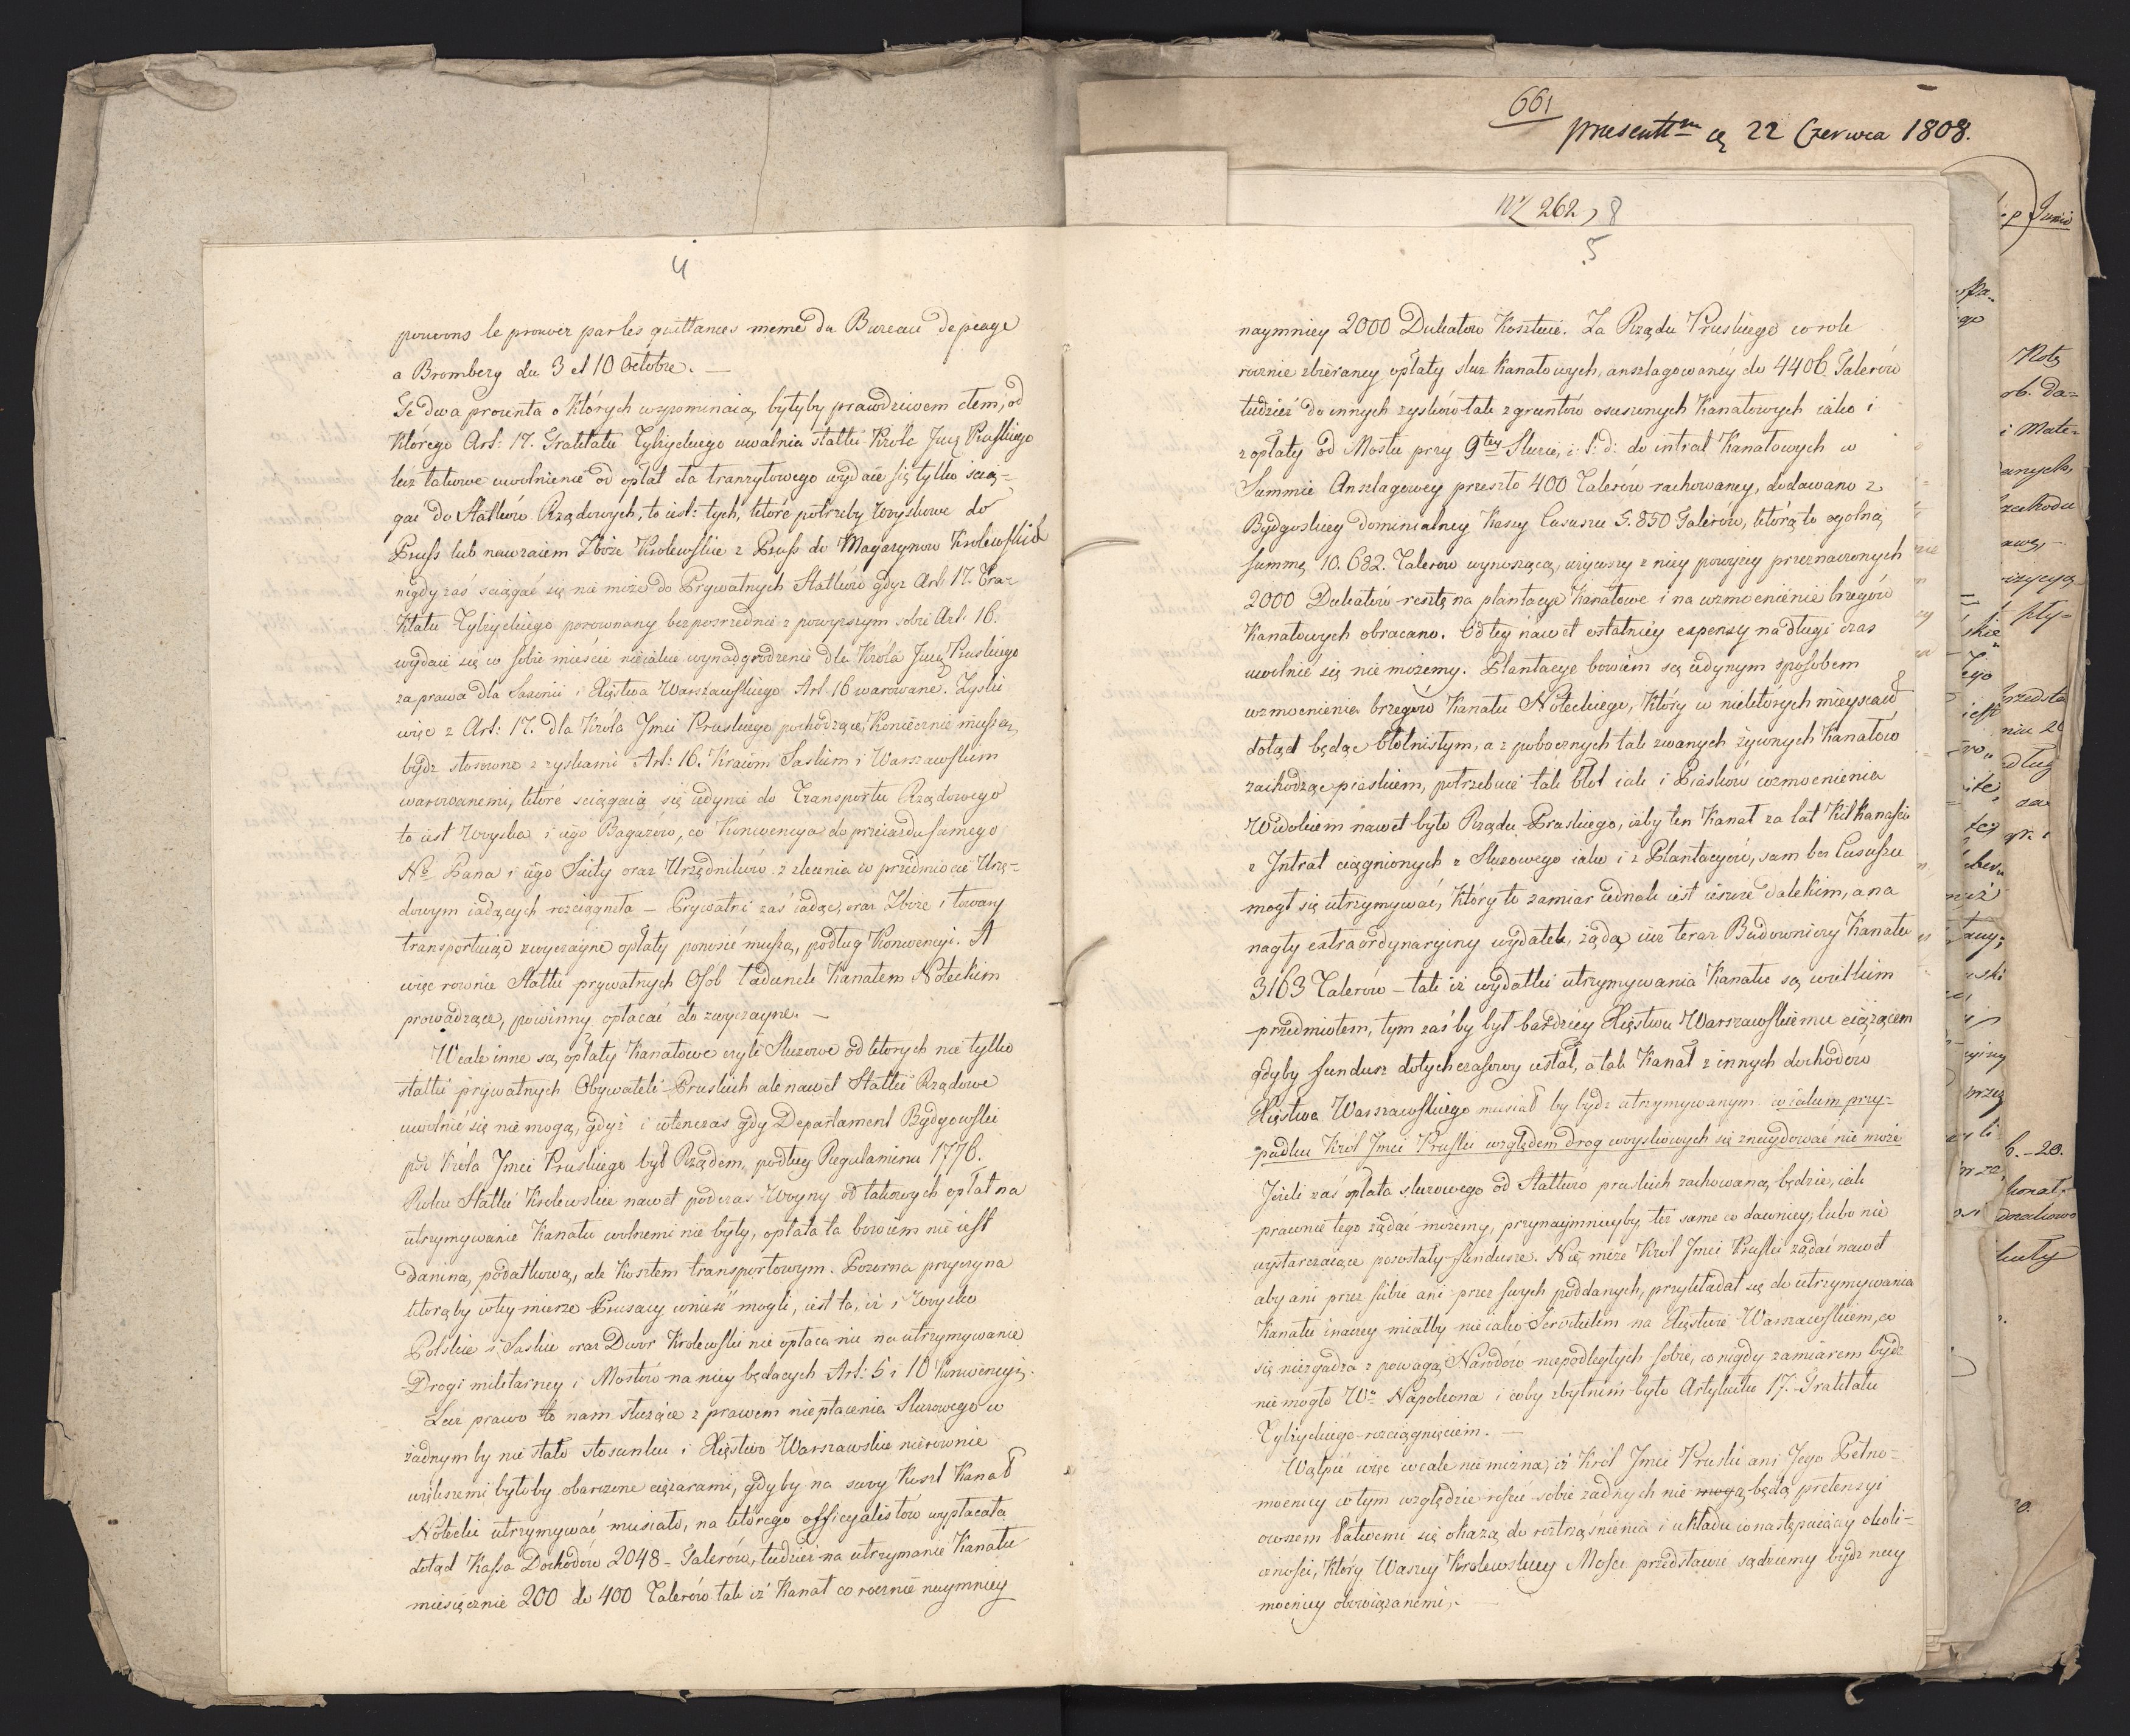 661
praesentm d 22 Czerwca 1808.
N 262, 8
4
pouvons le prouver par les quittances meme du Bureau de peage
a Bromberg du 3 et 10 Octobre. —
Te dwa procenta o których wspominaią, byłyby prawdziwem cłem, od
którego Art: 17. Traktatu Tylżyckiego uwalnia statki Króla Jmci Pruskiego
lecz takowe uwolnienie od opłat cła tranzytowego wydaie się tylko ścią-
gać do Statków Rządowych, to iest: tych, które potrzeby Woyskowe do
Pruss lub nawzaiem Zboże Krolewskie z Pruss do Magazynow Krolewskich
nigdy zaś sciągać się nie może do Prywatnych Statków gdyż Art: 17. Trak
ktatu Tylżyckiego porownany bezposrednie z powyższym sobie Art: 16.
wydaie się w sobie mieścić nieiakie wynadgrodzenie dla Króla Jmci Pruskiego
za prawa dla Saxonii i Xięstwa Warszawskiego Art. 16 warowane. Zyski
więc z Art: 17. dla Króla Jmci Pruskiego pochodzące, koniecznie muszą
bydz stosowne z zyskami Art: 16. Kraiom Saskim i Warszawskim
warowanemi, które sciągaią się iedynie do Transportu Rządowego
to iest Woyska i iego Bagażów, co Konwencya do przeiazdu samego
No Pana i iego Suity oraz Urzędników z zlecenia w przedmiocie Urzę-
dowym iadących rozciągnęła — Prywatni zaś iadąc, oraz Zboże i towary
transportuiąc zwyczayne opłaty ponosić muszą, podług Konwencyi. A
więc rownie Statki prywatnych Osób ładunek Kanałem Noteckim
prowadzące, powinny opłacać cło zwyczayne. —
Wcale inne są opłaty Kanałowe czyli Sluzowe od których nie tylko
statki prywatnych Obywateli Pruskich ale nawet Statki Rządowe
uwolnić się nie mogą, gdyż i wtenczas gdy Departament Bydgowski
pod Króla Jmci Pruskiego był Rządem, podług Regulaminu 1776.
Roku Statki Krolewskie nawet podczas Woyny od takowych opłat na
utrzymywanie Kanału wolnemi nie były, opłata ta bowiem nie iest
Daniną, podatkową, ale kosztem transportowym. Pozorna przyczyna
którąby w tey mierze Prusacy wnieść mogli, iest ta, iż i Woysko
Polskie i Saskie oraz Dwor Krolewski nie opłaca nic na utrzymywanie
Drogi militarney i Mostów na niey będacych Art: 5 i 10 Konwencyi.
Lecz prawo to nam służące z prawem niepłacenia Sluzowego w
żadnym by nie stało stosunku i Xięstwo Warszawskie nierownie
większemi byłoby obarczone ciężarami, gdyby na swoy koszt Kanał
Notecki utrzymywać musiało, na którego officyalistów wypłacała
dotąd Kassa Dochodów 2048 - Talerów, tudzież na utrzymanie Kanału
miesięcznie 200 do 400 Talerów tak iż Kanał co rocznie naymniey
5
naymniey 2000 Dukatow kosztuie. Za Rządu Pruskiego co rok
rocznie zbieraney opłaty sluz Kanałowych, anszlagowaney do 4406. Talerów
tudzież do innych zysków tak z gruntów osuszonych Kanałowych iako i
z opłaty od Mostu przy 9tey Sluzie, i: t: d: do intrat Kanałowych w
Summie Anszlagowey przeszło 400 Talerów rachowaney, dodawano z
Bydgoskiey dominialney Kassy Zasusu 5.850 Talerów, którą to ogolną
summę 10.682. Talerow wynoszącą, używszy z niey powyżey przeznaczonych
2000 Dukatów resztę na plantacye Kanałowe i na wzmocnienie brzegów
Kanałowych obracano. Od tey nawet ostatniey expensy na długi czas
uwolnić się nie możemy. Plantacye bowiem są iedynym sposobem
wzmocnienia brzegów Kanału Noteckiego, który w niektórych mieyscach
dotąd będąc błotnistym, a z pobocznych tak zwanych żywnych Kanałów
zachodząc piaskiem, potrzebuie tak błot iak i Piasków wzmocnienia
Widokiem nawet było Rządu Pruskiego, iżby ten Kanał za lat Kilkanaście
z Jntrat ciągnionych z Sluzowego iako i z Plantacyów, sam bez Zasusku
mogł się utrzymywać, Który to zamiar iednak iest ieszcze dalekim, a na
nagły extraordynaryiny wydatek, żąda iuż teraz Budowniczy Kanału
3163 Talerów — tak iż wydatki utrzymywania Kanału są wielkim
przedmiotem, tym zaś by był bardziey Xięstwu Warszawskiemu ciążącem
gdyby fundusz dotychczasowy ustał, a tak Kanał z innych dochodow
Xięstwa Warszawskiego musiał by bydz utrzymywanym w iakim przy-
padku Król Jmci Pruski względem drog woyskowych się znaydować nie może
Jeżeli zaś opłata sluzowego od Statkow pruskich zachowaną będzie, iak
prawnie tego żądać możemy, przynaymnieyby też same co dawniey, lubo nie
wystarczaiące pozostały fundusze. Nie może Król Jmci Pruski żądać nawet
aby ani przez siebie ani przez swych poddanych, przykładał się do utrzymywania
Kanału inaczey miałby nieiako Servitutem na Xięstwie Warszawskiem, co
się niezgadza z powagą Narodów niepodległych sobie, co nigdy zamiarem bydz
nie mogło Wo Napoleona i coby zbytniem było Artykułu 17. Traktatu
Tylżyckiego rozciągnięciem. —
Wątpić więc wcale nie można, iż Król Jmci Pruski ani Jego Pełno-
mocnicy w tym względzie rościć sobie żadnych nie mogą będą pretensyi
owszem łatwemi się okażą do roztrząśnienia i układu w następuiącey okoli-
czności, który Waszey Krolewskiey Mości przedstawić sądziemy bydz nay
mocniey obowiązanemi. —
Junii
Notę
ob. Da=
i Mate=